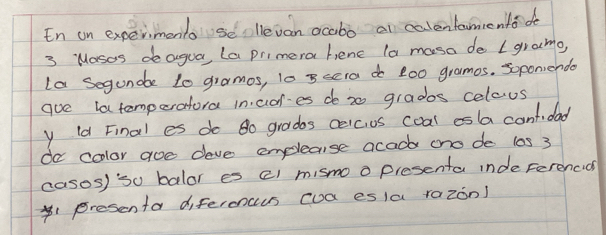 En un experimento se llevan acabo al calentamiento de
3 Masas de agua, La primera tiene la masa de 1 gramo,
la segunda 10 gramos, la 3 sera de 100 gramos. Soponiendo
que la temperatura inicial es de 20 grados celcius
y la Final es de 80 grados celcius cual es la cantidad
de calor que deve emplearse acada uno de los 3
casos) su balor es el mismo o presenta indeferencias
si presenta diferencias cua es la razón)